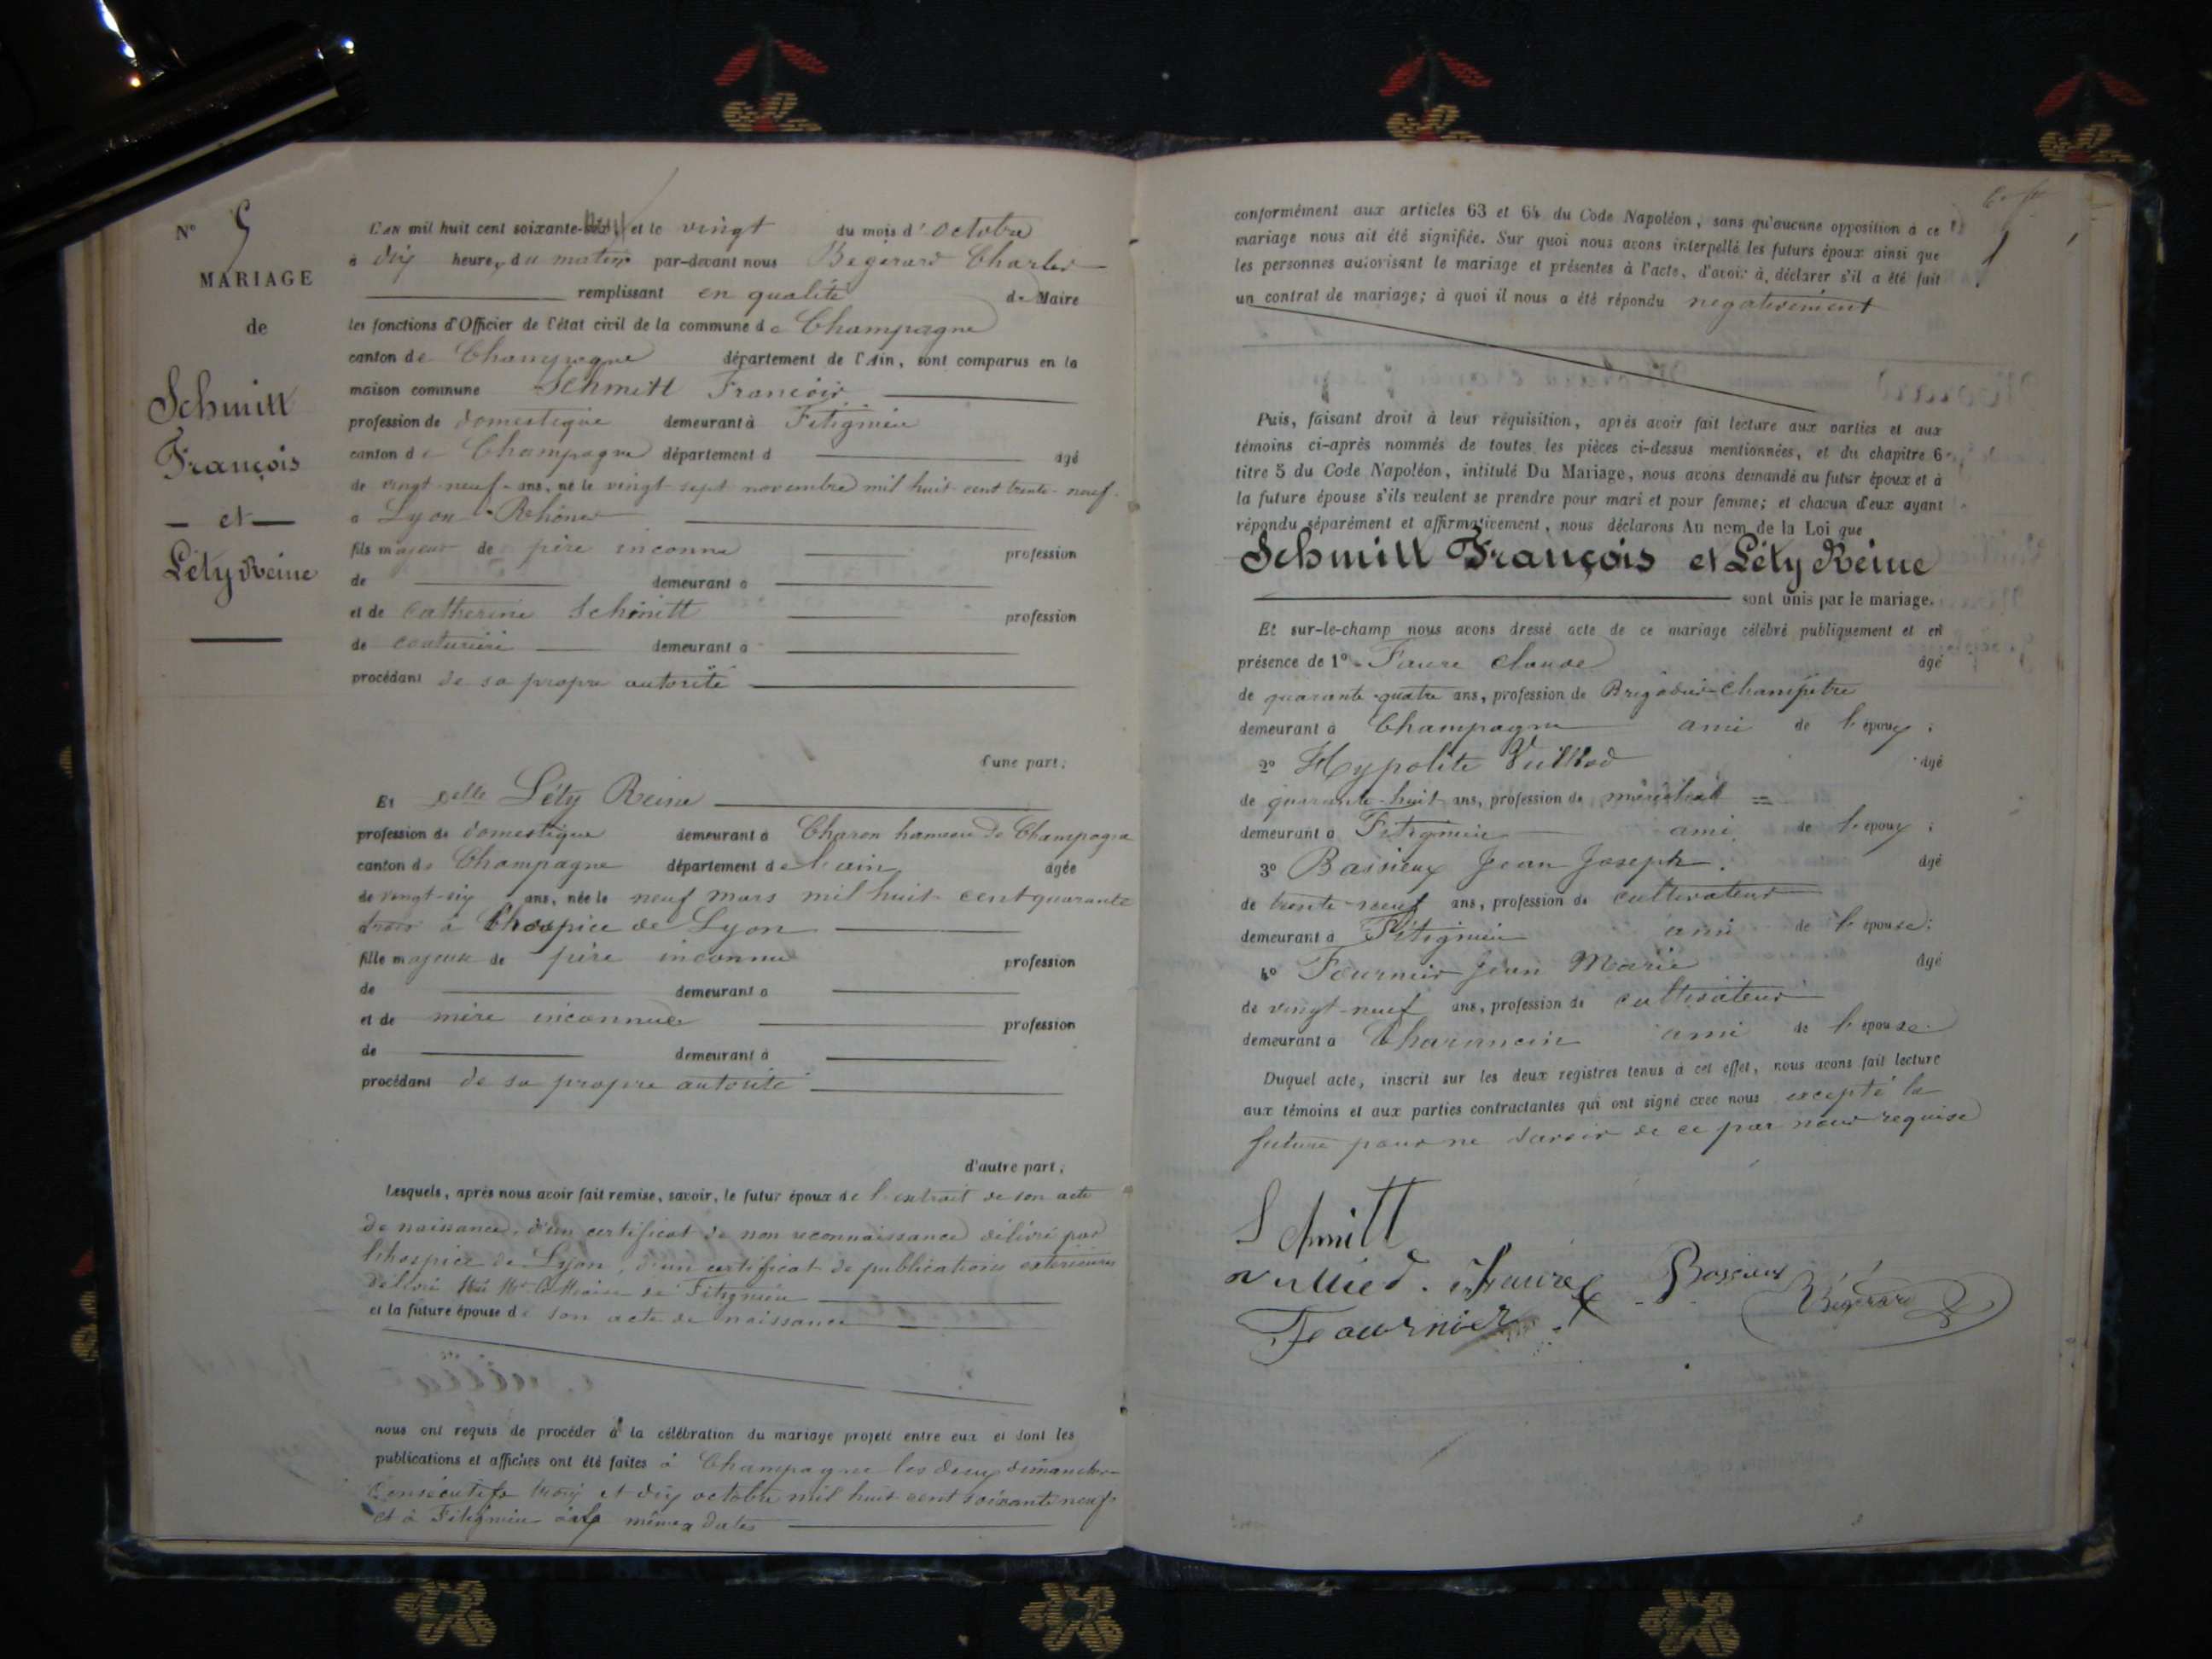 N° 5
MARIAGE
de
Schmitt
François
— et —
Léty Reine
L'an mil huit cent soixante- et le vingt du mois d'octobre
à dix heures du matin par-devant nous Begerard Charles
remplissant en qualité de Maire
les fonctions d'Officier de l'état civil de la commune de Champagne
canton de Champagne département de l'Ain, sont comparus en la
maison commune Schmitt François
profession de domestique demeurant à Fitignieu
canton de Champagne département d âgé
de vingt-neuf ans, né le vingt sept novembre mil huit cent trente-neuf
à Lyon Rhône
fils majeur de père inconnu profession
de demeurant à
et de Catherine Schmitt profession
de couturière demeurant à
procédant de sa propre autorité
d'une part;
Et delle Léty Reine
profession de domestique demeurant à Charon hameau de Champagne
canton de Champagne département de l'ain âgée
de vingt-six ans, née le neuf mars mil huit cent quarante
trois à l'hospice de Lyon
fille majeure de père inconnu profession
de demeurant à
et de mère inconnue profession
de demeurant à
procédant de sa propre autorité
d'autre part;
Lesquels, après nous avoir fait remise, savoir, le futur époux de l'extrait de son acte
de naissance, d'un certificat de non reconnaissance délivré par
l'hospice de Lyon, d'un certificat de publications extérieures
délivré Mr le Maire de Fitignieu
et la future épouse de son acte de naissance
nous ont requis de procéder à la célébration du mariage projeté entre eux et dont les
publications et affiches ont été faites à Champagne les deux dimanches
consécutifs trois et dix octobre mil huit cent soixante neuf
et à Fitignieu mêmes dates
conformément aux articles 63 et 64 du Code Napoléon, sans qu'aucune opposition à ce
mariage nous ait été signifiée. Sur quoi nous avons interpellé les futurs époux ainsi que
les personnes autorisant le mariage et présentes à l'acte, d'avoir à déclarer s'il a été fait
un contrat de mariage; à quoi il nous a été répondu negativement
Puis, faisant droit à leur réquisition, après avoir fait lecture aux parties et aux
témoins ci-après nommés de toutes les pièces ci-dessus mentionnées, et du chapitre 6
titre 5 du Code Napoléon, intitulé Du Mariage, nous avons demandé au futur époux et à
la future épouse s'ils veulent se prendre pour mari et pour femme; et chacun d'eux ayant
répondu séparément et affirmativement, nous déclarons Au nom de la Loi que
Schmitt François et Léty Reine
sont unis par le mariage.
Et sur-le-champ nous avons dressé acte de ce mariage célébré publiquement et en
présence de 1° Faure Claude âgé
de quarante-quatre ans, profession de Brigadier-Champêtre
demeurant à Champagne ami de l'époux;
2° Hypolite Vulliod âgé
de quarante-huit ans, profession de maréchal
demeurant à Fitignieu ami de l'époux;
3° Bassieux Jean Joseph âgé
de trente-neuf ans, profession de cultivateur
demeurant à Fitignieu ami de l'épouse;
4° Fournier Jean Marie âgé
de vingt-neuf ans, profession de cultivateur
demeurant à Charancin ami de l'épouse.
Duquel acte, inscrit sur les deux registres tenus à cet effet, nous avons fait lecture
aux témoins et aux parties contractantes qui ont signé avec nous excepté la
future pour ne savoir de ce par nous requise
Schmitt
Faure Bassieux Bégerard
Fournier